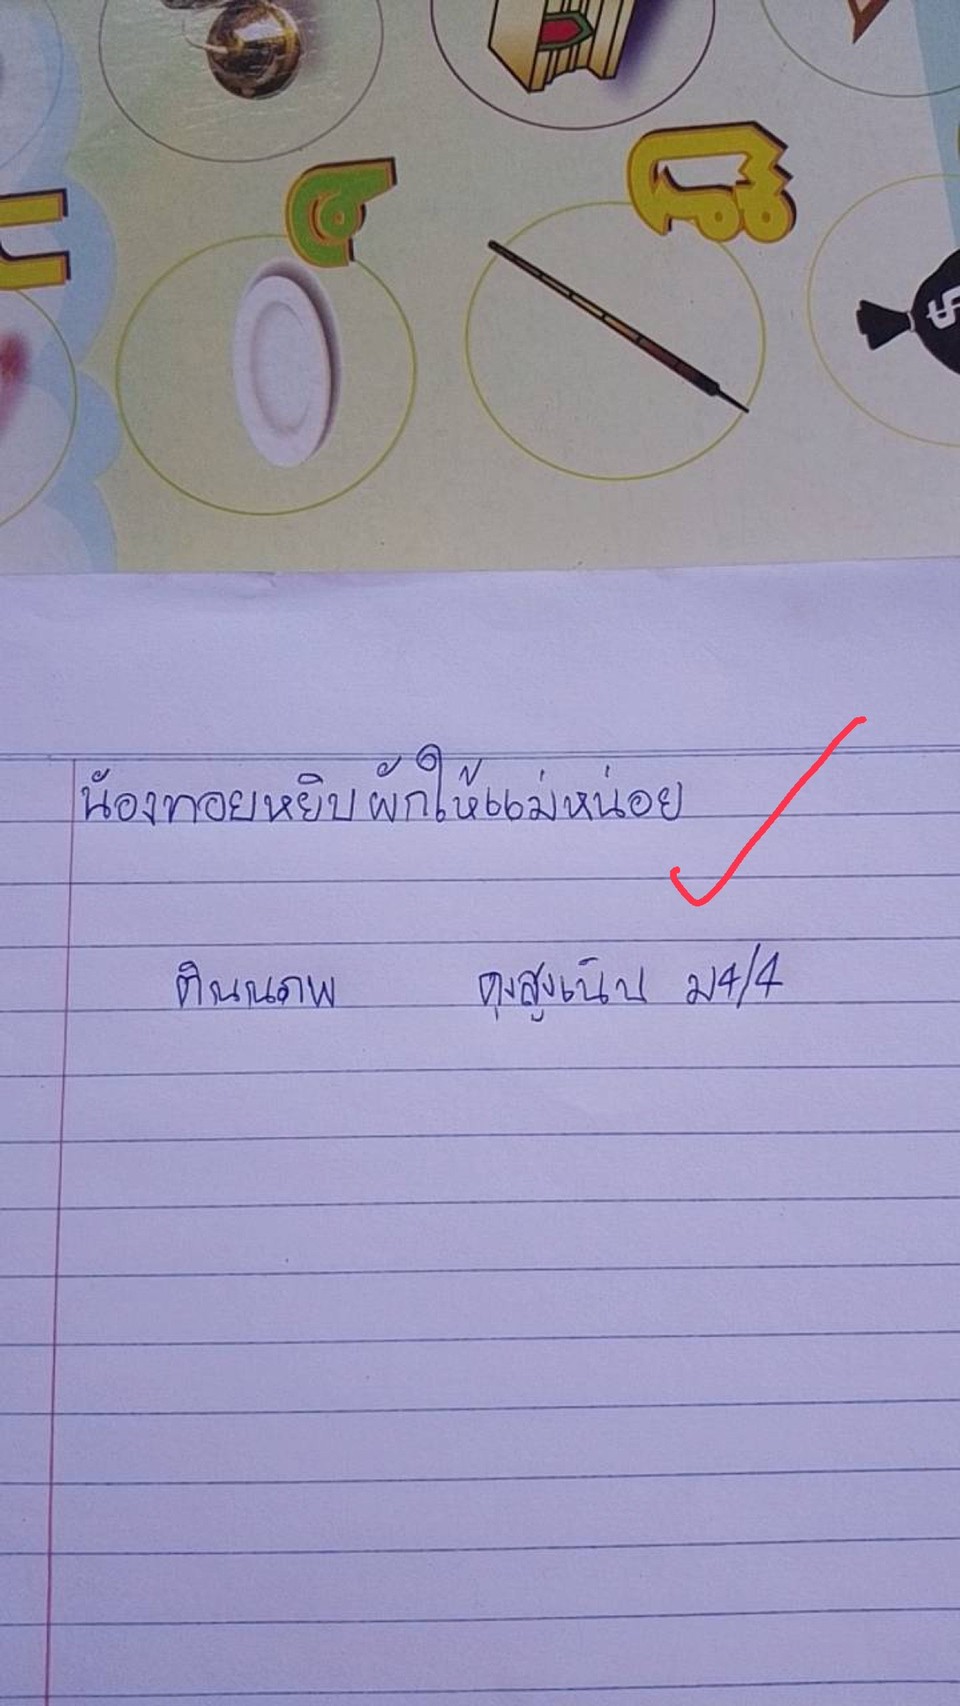 จ ฌ
น้องทอยหยิบผักให้แม่หน่อย
ติณณภพ ดุงสูงเนิน ม4/4